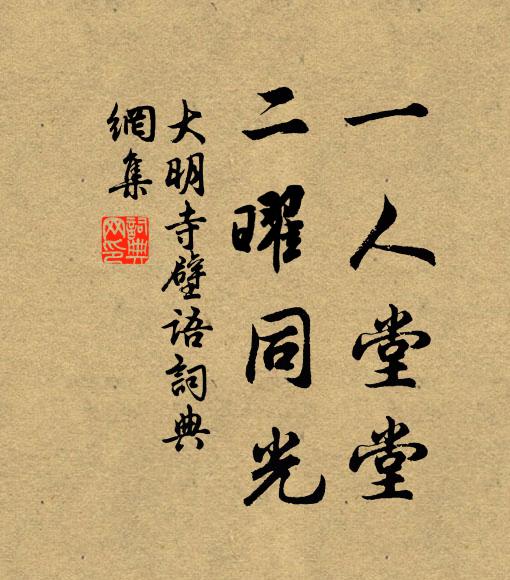 一人堂堂
二曜同光
大明寺壁語詞典
網集
詞典
网印